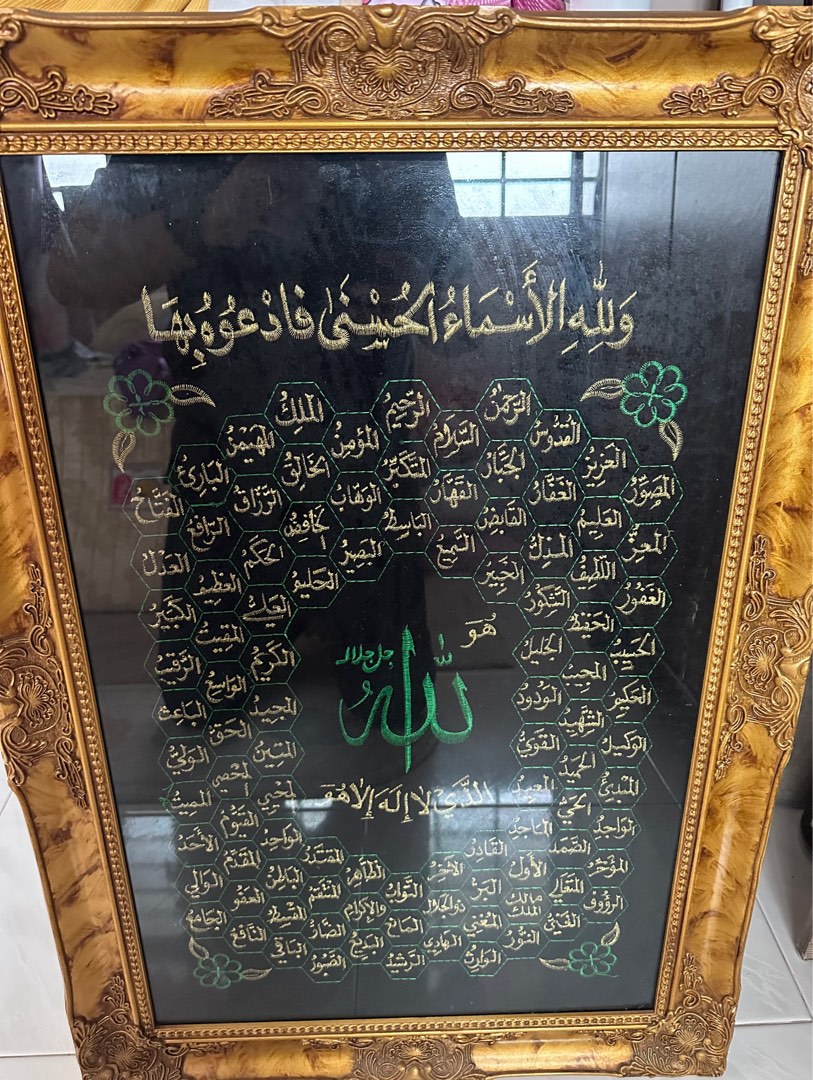 وَلِلّٰهِ الْأَسْمَاءُ الْحُسْنَىٰ فَادْعُوهُ بِهَا
الرحمن الرحيم الملك
القدوس السلام المؤمن المهيمن
العزيز الجبار المتكبر الخالق البارئ
المصور الغفار القهار الوهاب الرزاق الفتاح
العليم القابض الباسط الخافض الرافع
المعز المذل السميع البصير الحكم العدل
اللطيف الخبير الحليم العظيم
الغفور الشكور العلي الكبير
الحفيظ المقيت
الحسيب الجليل الكريم الرقيب
المجيب الواسع
الحكيم الودود المجيد الباعث
الشهيد الحق
الوكيل القوي المتين الولي
الحميد المحصي
المبدئ المعيد المحيي المميت
الحي القيوم
الواجد الماجد الواحد الأحد
الصمد القادر المقتدر المقدم
المؤخر الأول الآخر الظاهر الباطن الوالي
المتعالي البر التواب المنتقم العفو
الرؤوف مالك الملك ذو الجلال والإكرام المقسط الجامع
الغني المغني المانع الضار النافع
النور الهادي البديع الباقي
الوارث الرشيد الصبور
هُوَ
الله جل جلاله
الذي لا إله إلا هو